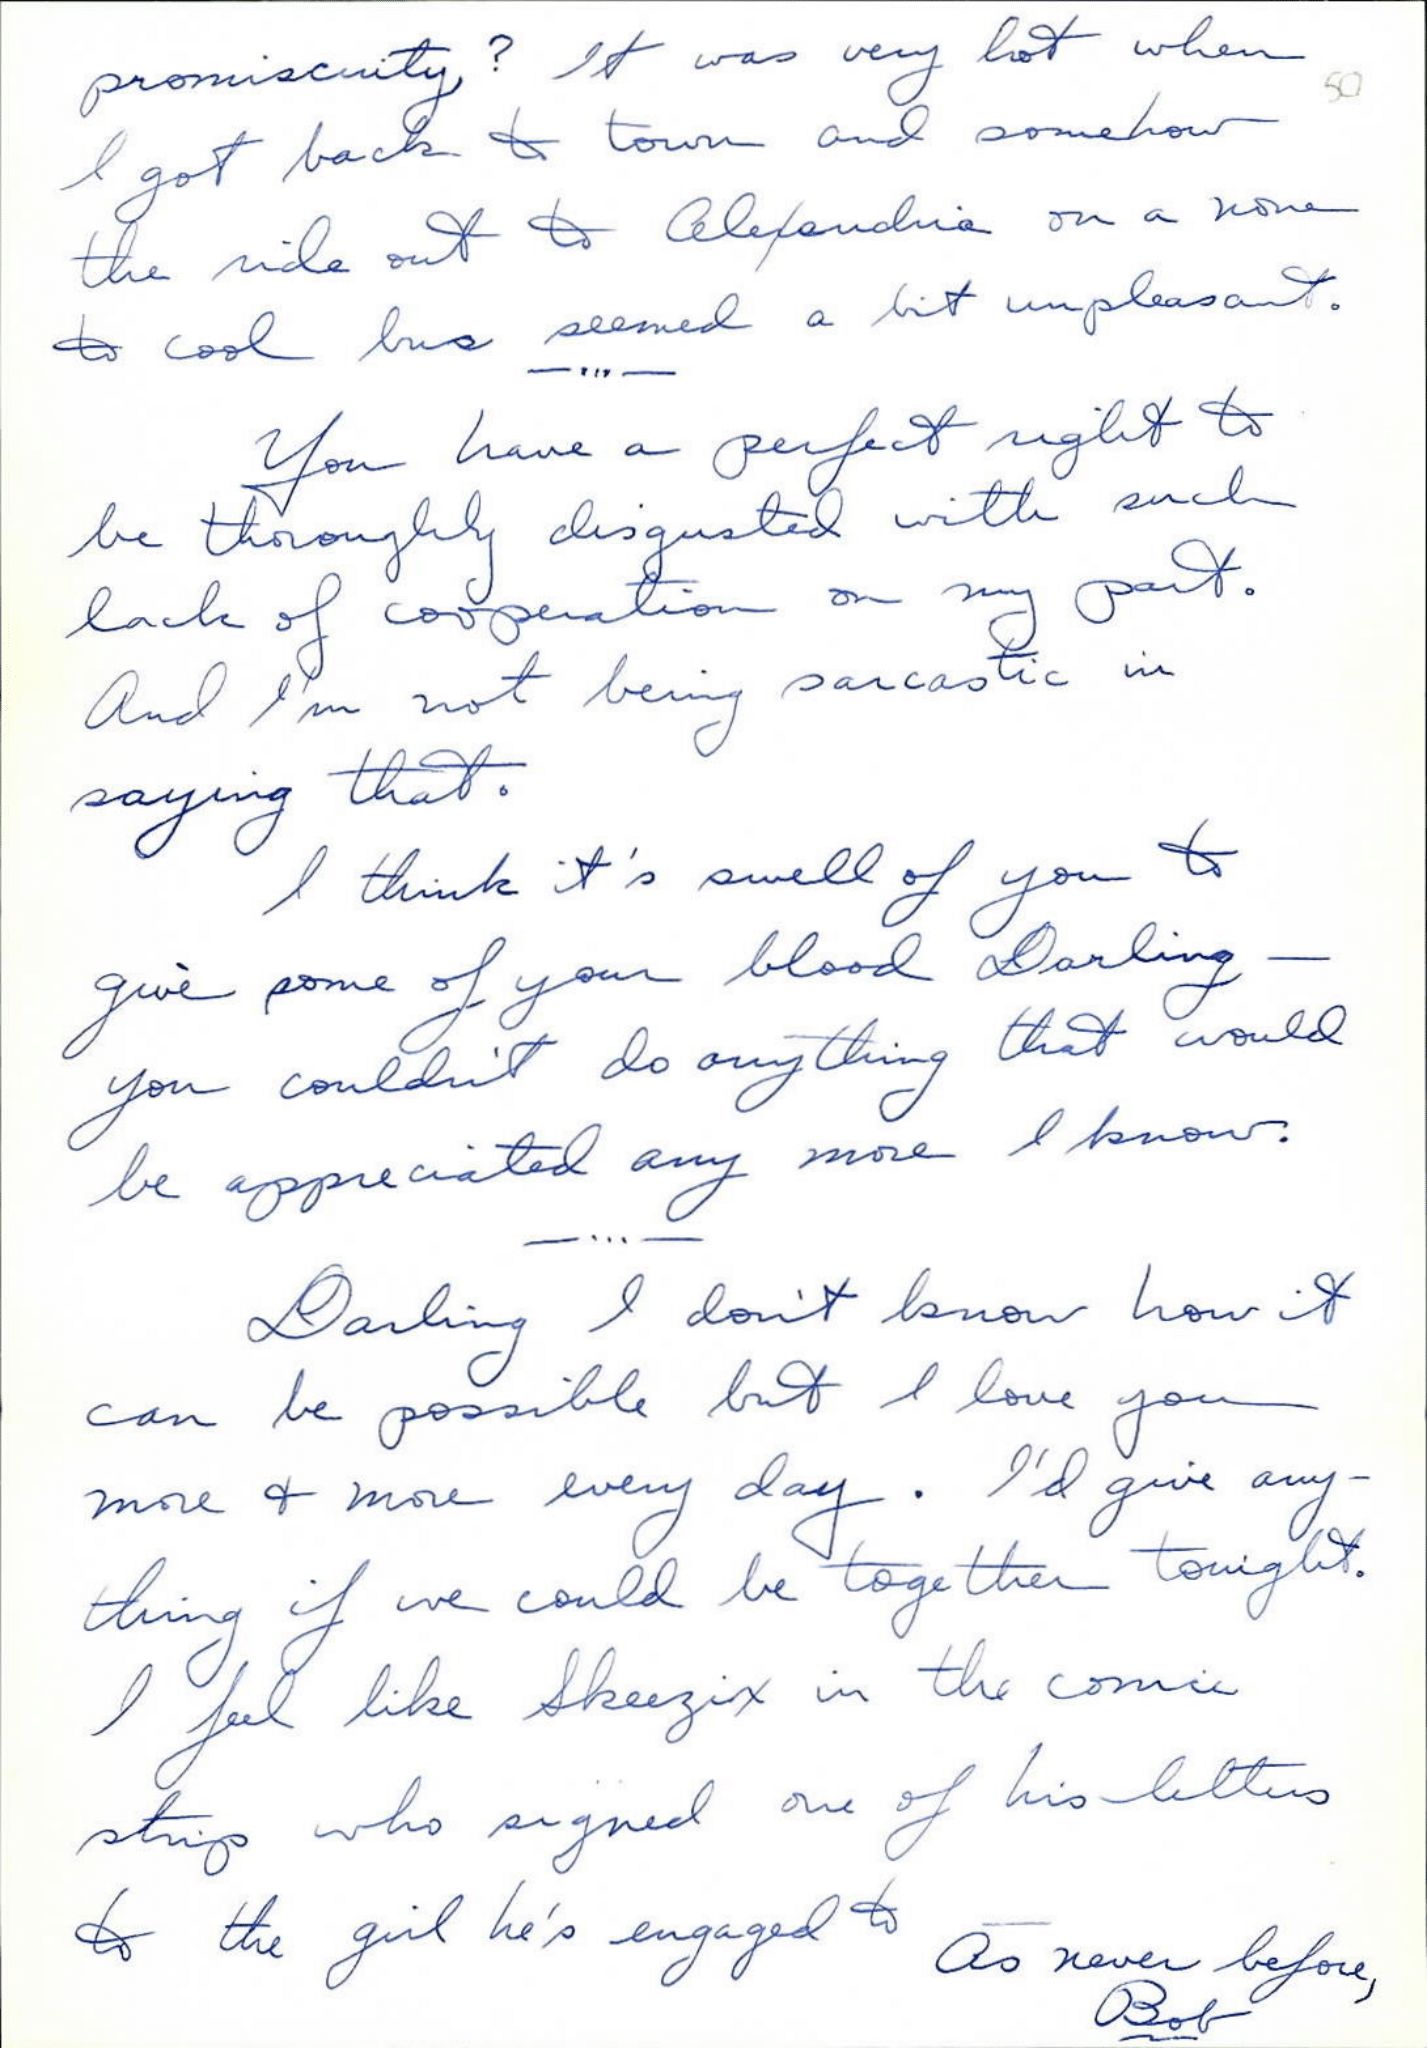 promiscuity,? It was very hot when
50
I got back to town and somehow
the ride out to Alexandria on a none
to cool bus seemed a bit unpleasant.
— ... —
You have a perfect right to
be thoroughly disgusted with such
lack of cooperation on my part.
And I'm not being sarcastic in
saying that.
I think it's swell of you to
give some of your blood Darling —
you couldn't do anything that would
be appreciated any more I know.
— ... —
Darling I don't know how it
can be possible but I love you
more & more every day. I'd give any-
thing if we could be together tonight.
I feel like Skeezix in the comic
strip who signed one of his letters
to the girl he's engaged to —
As never before,
Bob